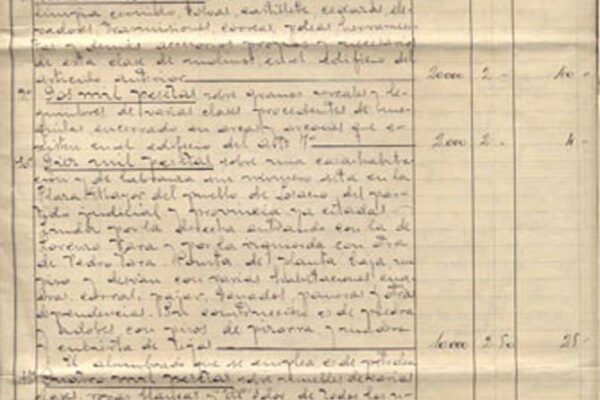 limpia cernido, tolvas, castillete, cedazos, ele-
vadores, transmisiones, correas, poleas herramien-
tas y demás accesorios propios y necesarios
de esta clase de molinos, en el edificio del
articulo anterior 20000 2 - 40 -
Dos mil pesetas sobre granos cereales y le-
gumbres de varias clases procedentes de
encerrado en arcas y arcones que e-
xisten en el edificio del artº 1º 2.000 2 - 4 -
Diez mil pesetas sobre una casa habita-
ción y de labranza sin número sita en la
Plaza Mayor del pueblo de Losacio del par-
tido judicial y provincia ya citadas
Linda por la derecha entrando con la de
Lorenzo Vara y por la izquierda con otra
de Pedro Vara. Consta de planta baja un
piso y desván con varias habitaciones cua-
dras, corral, pajar, ganados, paneras y otras
dependencias. Su construcción es de piedra
y adobes con pisos de pizarra y madera
y cubierta de tejas 10.000 2.50 25 -
El alumbrado que se emplea es de petroleo
Cuatro mil pesetas sobre muebles de varias
clases, ropas blancas y de color de todos los